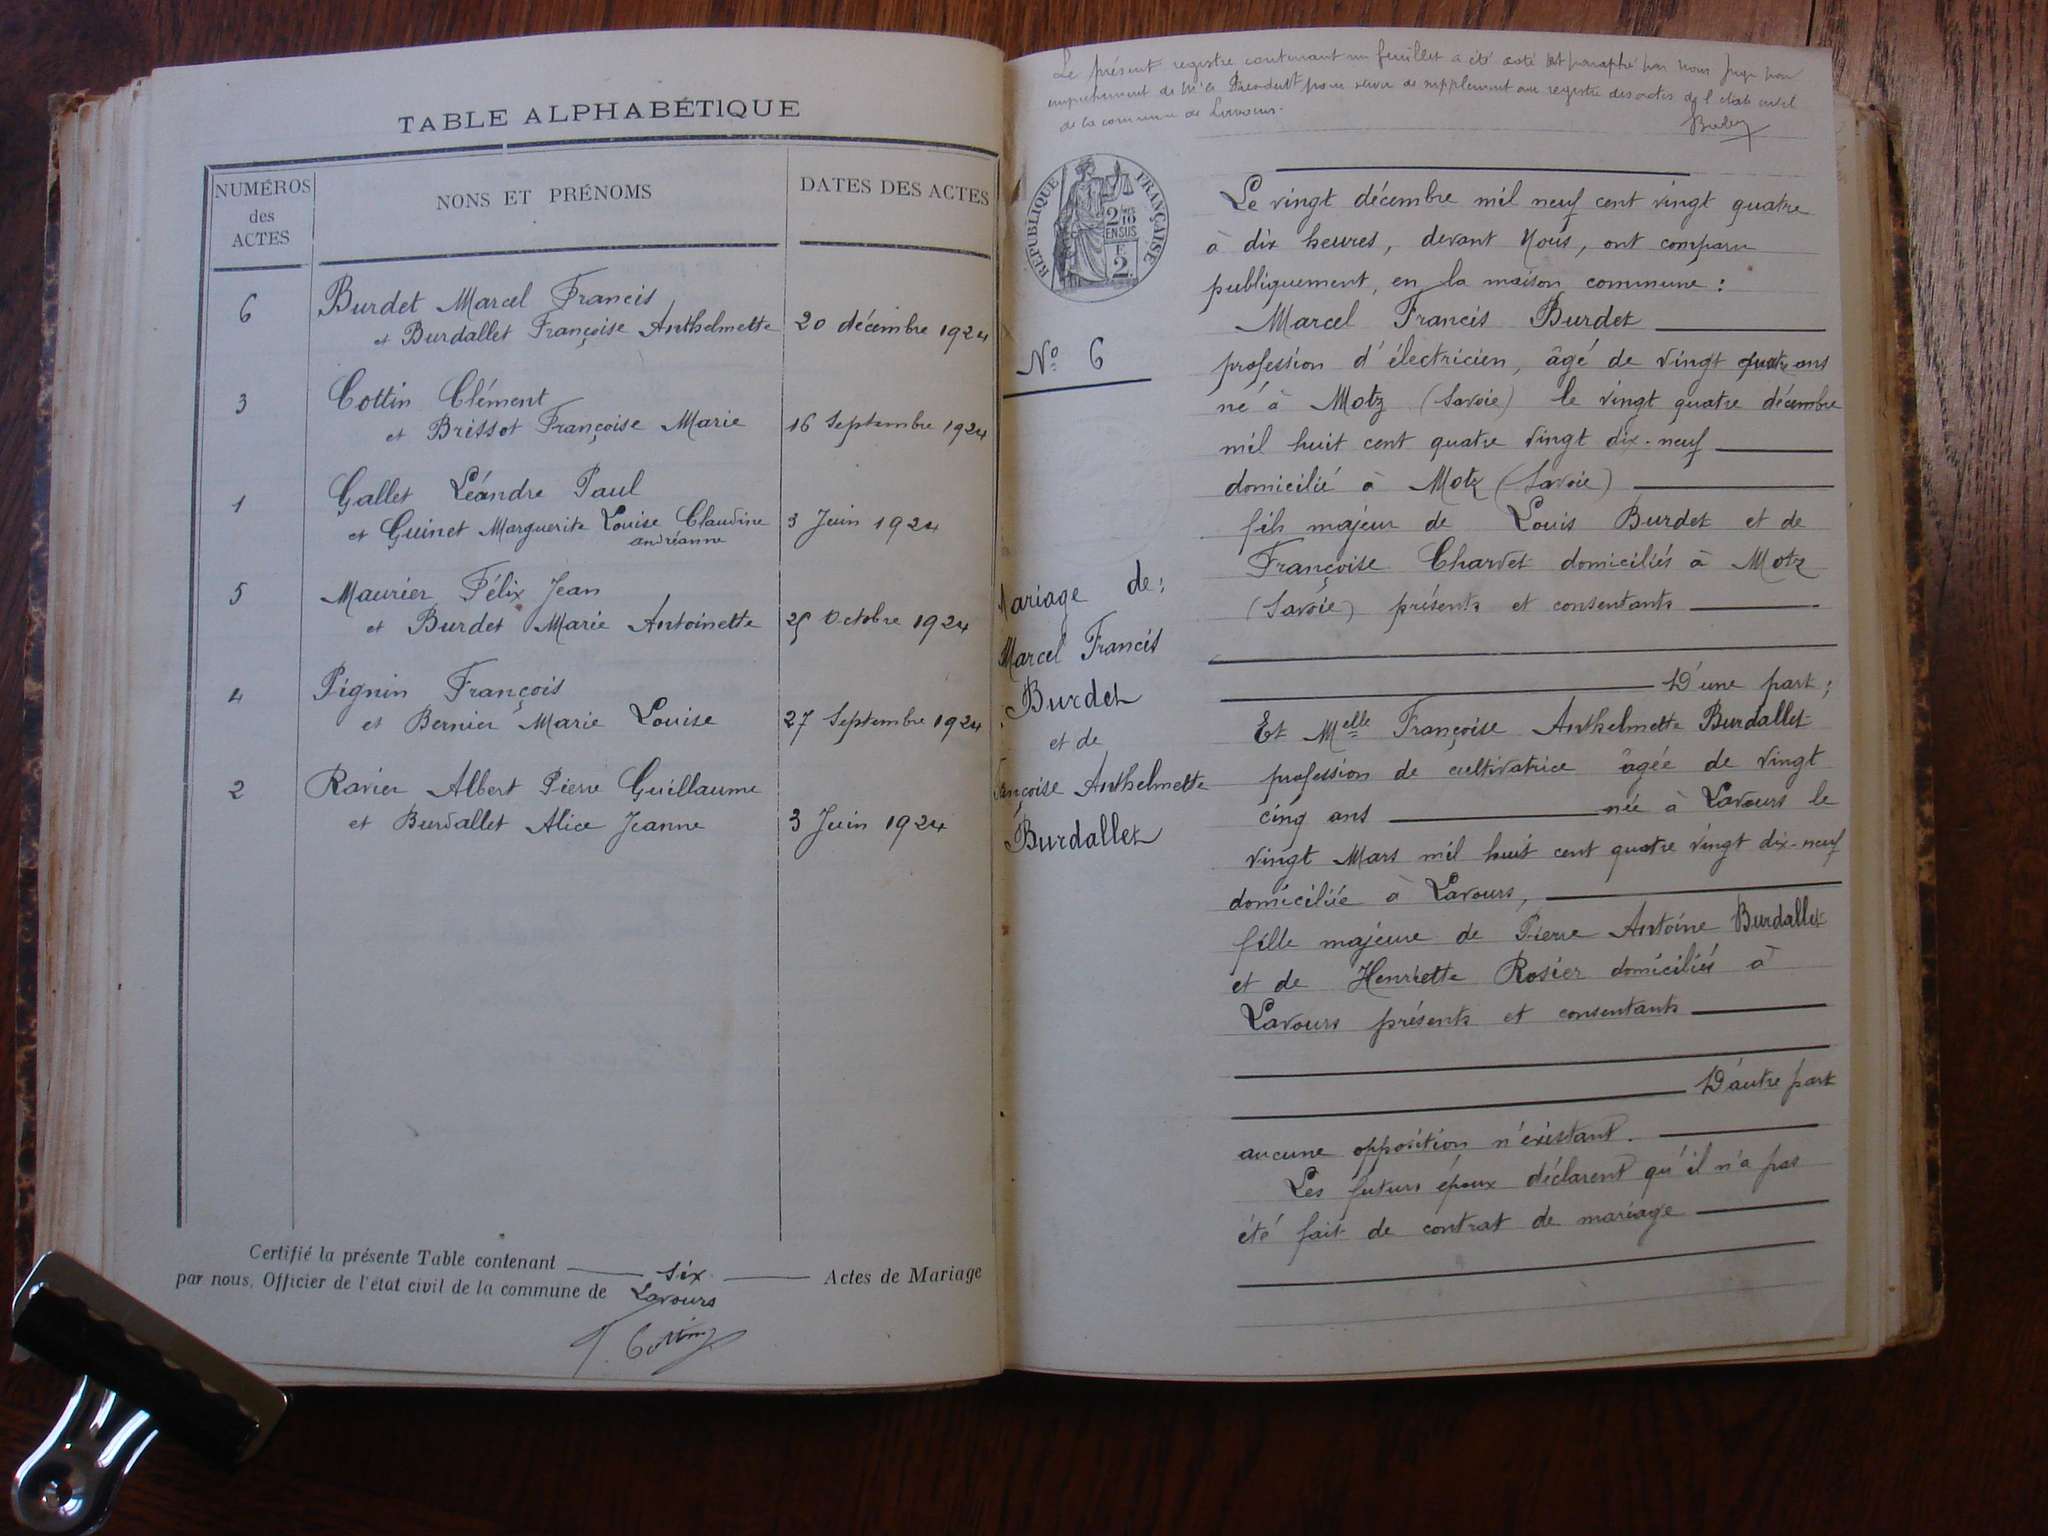 TABLE ALPHABÉTIQUE
NUMÉROS des ACTES
NONS ET PRÉNOMS
DATES DES ACTES
6 Burdet Marcel Francis
et Burdallet Françoise Anthelmette 20 décembre 1924
3 Cottin Clément
et Brissot Françoise Marie 16 Septembre 1924
1 Gallet Léandre Paul
et Guinet Marguerite Louise Claudine 3 Juin 1924
andréanne
5 Maurier Félix Jean
et Burdet Marie Antoinette 25 Octobre 1924
4 Pignin François
et Bernier Marie Louise 27 Septembre 1924
2 Ravier Albert Pierre Guillaume
et Burdallet Alice Jeanne 3 Juin 1924
Certifié la présente Table contenant six Actes de Mariage
par nous, Officier de l'état civil de la commune de Lavours
Cottin
Le présent registre contenant un feuillet a été coté et paraphé par nous juge pour
empêchement de Mr le Président pour servir de supplément au registre des actes de l'état civil
de la commune de Lavours.
RÉPUBLIQUE FRANÇAISE
2/10
EN SUS
2
F.
2.
Nº 6
Mariage de:
Marcel Francis
Burdet
et de
Françoise Anthelmette
Burdallet
Le vingt décembre mil neuf cent vingt quatre
à dix heures, devant Nous, ont comparu
publiquement, en la maison commune :
Marcel Francis Burdet
profession d'électricien, âgé de vingt quatre ans
né à Motz (Savoie) le vingt quatre décembre
mil huit cent quatre vingt dix-neuf
domicilié à Motz (Savoie)
fils majeur de Louis Burdet et de
Françoise Charvet domiciliés à Motz
(Savoie) présents et consentants
D'une part ;
Et Melle Françoise Anthelmette Burdallet
profession de cultivatrice âgée de vingt
cinq ans née à Lavours le
vingt Mars mil huit cent quatre vingt dix-neuf
domiciliée à Lavours,
fille majeure de Pierre Antoine Burdallet
et de Henriette Rosier domiciliés à
Lavours présents et consentants
D'autre part
aucune opposition n'existant.
Les futurs époux déclarent qu'il n'a pas
été fait de contrat de mariage